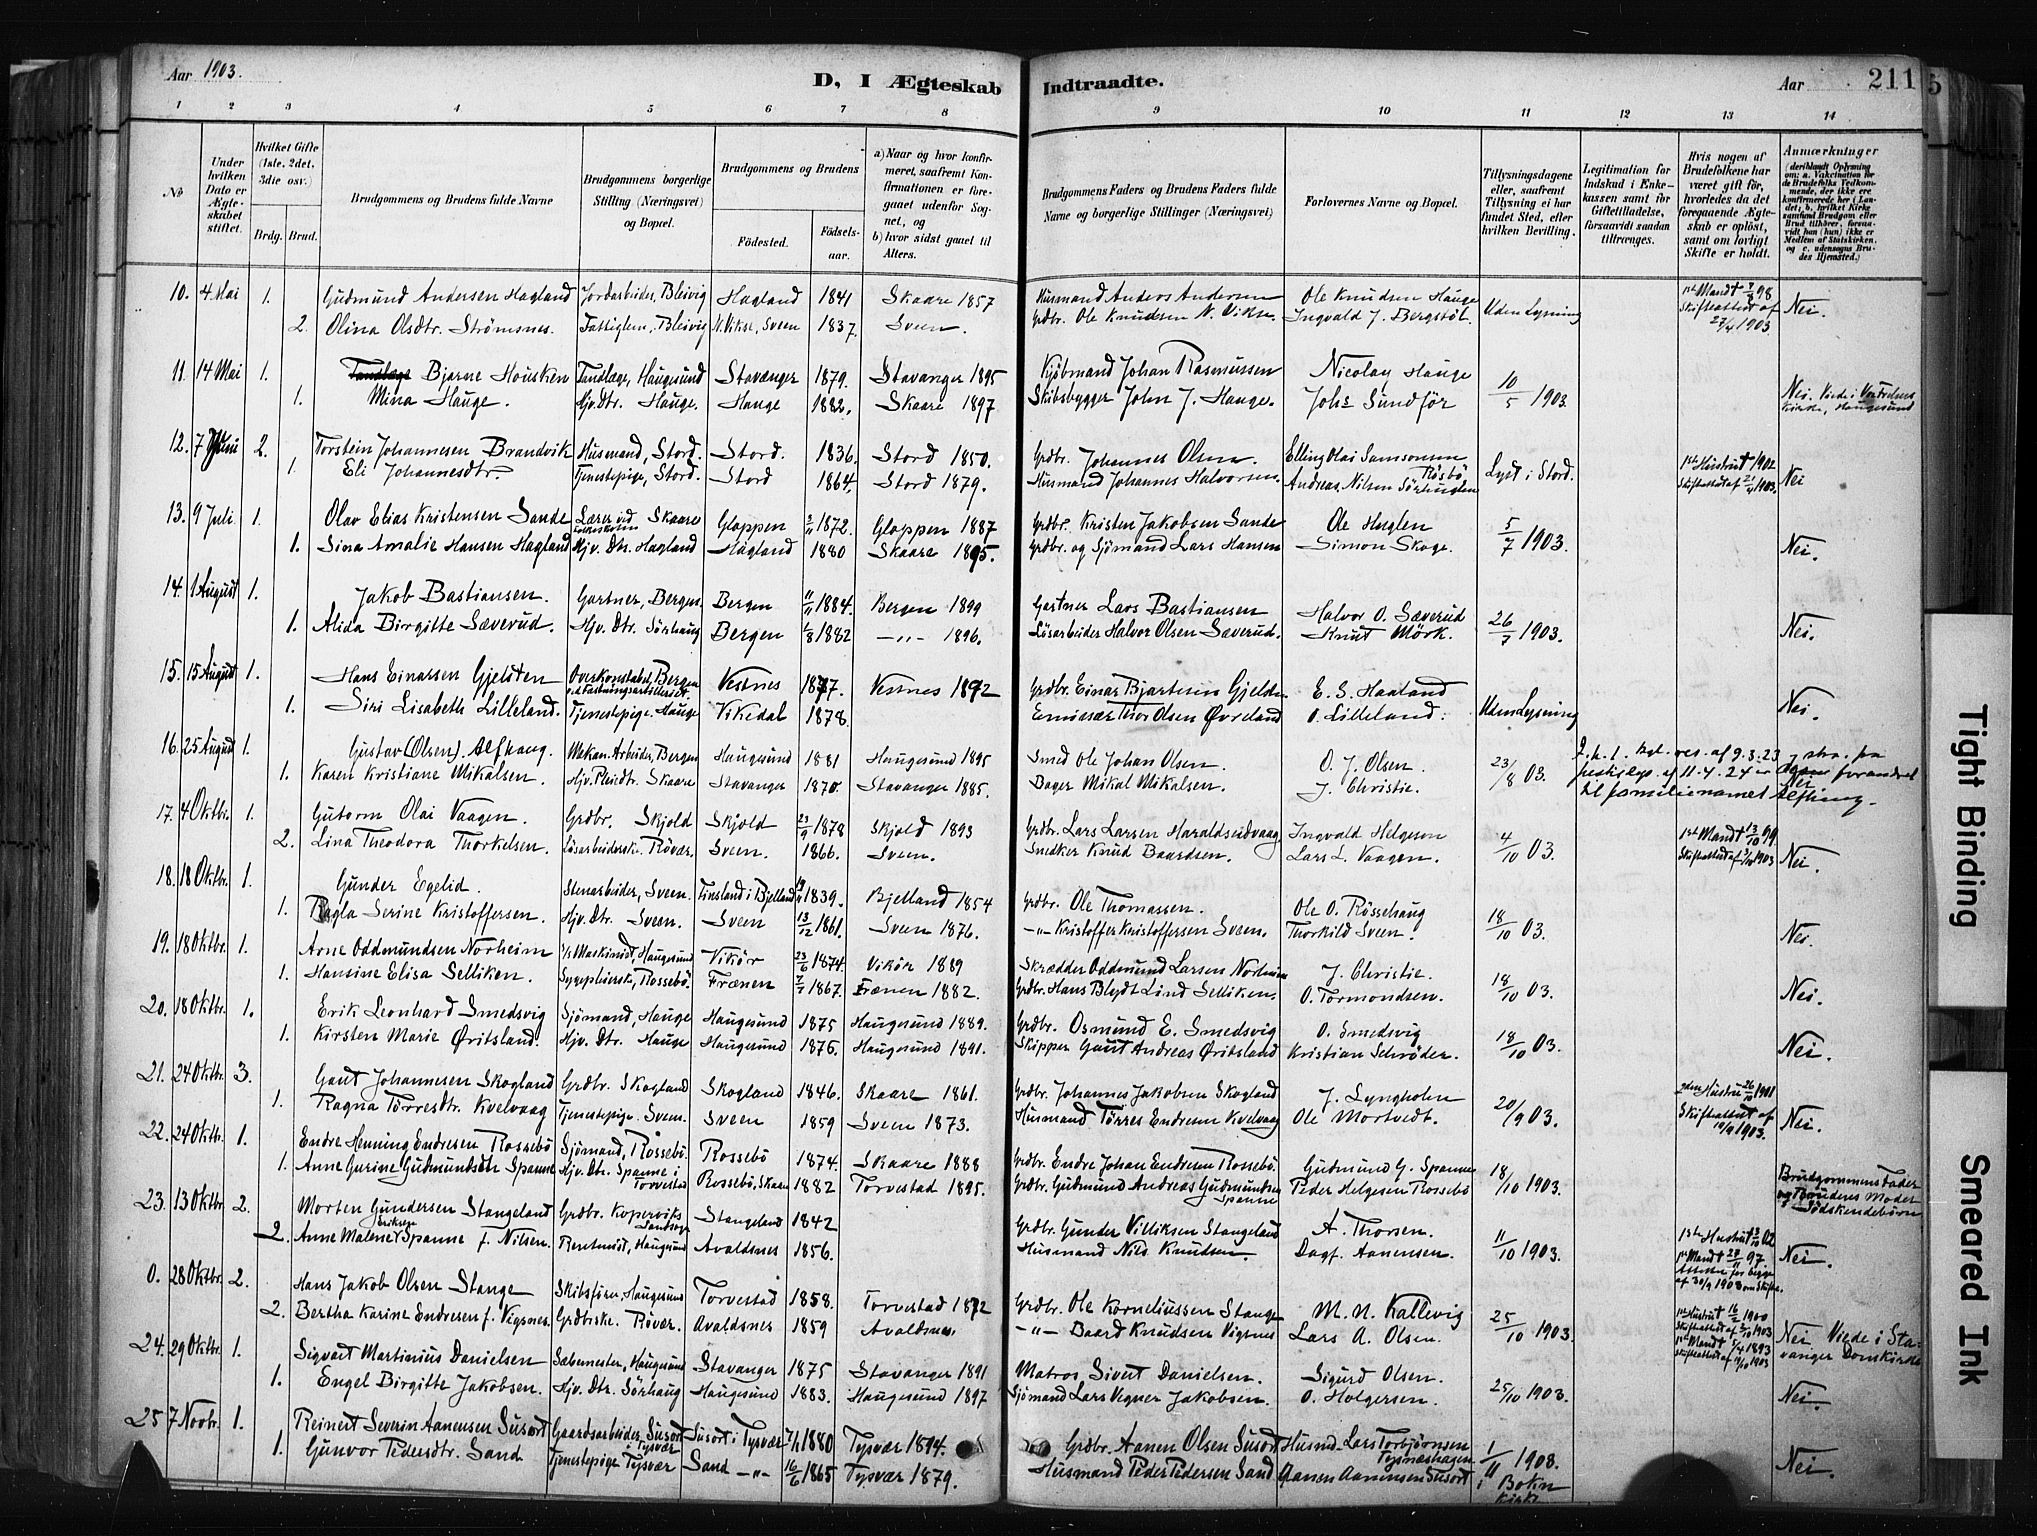 Aar 1903.
D, I Ægteskab Indtraadte.
Aar 211
5
1 2 3 4 5 6 7 8 9 10 11 12 13 14
№
Under hvilken Dato er Ægteskabet stiftet.
Hvilket Gifte (1ste, 2det, 3die osv.)
Brdg. Brud.
Brudgommens og Brudens fulde Navne
Brudgommens borgerlige Stilling (Næringsvei) og Bopæl.
Brudgommens og Brudens
Fødested. Fødselsaar.
a) Naar og hvor konfirmeret, saafremt Konfirmationen er foregaaet udenfor Sognet, og
b) hvor sidst gaaet til Alters.
Brudgommens Faders og Brudens Faders fulde Navne og borgerlige Stillinger (Næringsvei)
Forlovernes Navne og Bopæl.
Tillysningsdagene eller, saafremt Tillysning ei har fundet Sted, efter hvilken Bevilling.
Legitimation for Indskud i Enkekassen samt for Giftetilladelse, forsaavidt saadan tiltrænges.
Hvis nogen af Brudefolkene har været gift før, hvorledes da det foregaaende Ægteskab er opløst, samt om lovligt Skifte er holdt.
Anmærkninger
(deriblandt Oplysning om: a. Vakcination for de Brudefolks Vedkommende, der ikke ere konfirmerede her i Landet; b. hvilket Kirkesamfund Brudgom eller Brud tilhører, forsaavidt han (hun) ikke er Medlem af Statskirken, og c. udensogns Brudes Hjemsted.)
10. 4 Mai 1. Gudmund Andersen Hagland Jordarbeider, Bleivig Hagland 1841 Skaare 1857 Husmand Anders Andersen Ole Knudsen Hauge Uden Lysning 1ste Mand † 98 Skifteattest af 27/4 1903. Nei.
2. Olina Olsdtr. Strømsnes. Fattiglem, Bleivig N. Vikse, Sveen 1837. Sveen. Grdbr. Ole Knudsen N. Vikse. Ingvald J. Bergstöl.
11. 14 Mai 1. Tandlæge Bjarne Housken Tandlæge, Haugesund Stavanger 1879. Stavanger 1895 Kjöbmand Johan Rasmussen Nicolay Hauge 10/5 1903. Nei. Viede i Vorfrelsers Kirke, Haugesund
1. Mina Hauge. Hjv. Dtr. Hauge. Hauge 1882. Skaare 1897 Skibsbygger John J. Hauge. Johs Sundför
12. 7 Juni 2. Torstein Johannesen Brandvik Husmand, Stord. Stord. 1836. Stord 1850. Grdbr. Johannes Olsen. Elling Olai Samsonsen Røsbø Lyst i Stord. 1ste Hustru † 1902 Skifteattest af 21/4 1903. Nei
1. Eli Johannesdtr. Tjenestepige, Stord. Stord 1864. Stord 1879. Husmand Johannes Halvorsen. Andreas Nilsen Sörhuglen
13. 9 Juli. 1. Olav Elias Kristensen Sande Lærer ved Folkeskolen Skaare Gloppen 1872. Gloppen 1887 Grdbr. Kristen Jakobsen Sande Ole Huglen 5/7 1903. Nei.
1. Sina Amalie Hansen Hagland Hjv. Dtr. Hagland Hagland 1880 Skaare 1895. Grdbr. og Sjömand Lars Hansen Simon Skoge.
14. 1 August 1. Jakob Bastiansen. Gartner, Bergen. Bergen 11/11 1884. Bergen 1899 Gartner Lars Bastiansen Halvor O. Sæverud 26/7 1903. Nei.
1. Alida Birgitte Sæverud. Hjv. Dtr. Sörhaug Bergen 1/8 1882 —"— 1896. Lösarbeider Halvor Olsen Sæverud. Knut Mörk.
15. 15 August 1. Hans Einarsen Gjelsten Overkonstabel, Bergen v. d. Fæstningsartilleriet Vestnes 1877. Vestnes 1892 Grdbr. Einar Bjartesen Gjelsten E. S. Haaland Uden Lysning Nei.
1. Siri Lisabeth Lilleland. Tjenestepige. Hauge Vikedal 1878. Emissær Thor Olsen Øvreland O. Lilleland.
16. 25 August 1. Gustav (Olsen). Alfhaug. Mekan. Arbeider, Bergen Haugesund 1881 Haugesund 1895 Smed Ole Johan Olsen. O. J. Olsen. 23/8 03. I. h. t. kgl. res. af 9.3.23 og skr. fra fylkesleg. af 11.4.24 er Olsen forandret til familienavnet Alfhaug. Nei
1. Karen Kristiane Mikalsen. Hjv. Pleidtr. Skaare Stavanger 1870. Stavanger 1885. Bager Mikal Mikalsen. J. Christie.
17. 4 Oktbr. 1. Gutorm Olai Vaagen. Grdbr. Skjold Skjold 23/9 1878 Skjold 1893 Grdbr. Lars Larsen Haraldseidvaag Ingvald Helgesen 4/10 03. 1ste Mand † 13/10 99 Skifteattest af 3/10 1903 Nei.
2. Lina Theodora Thorkelsen. Lösarbeiderske. Røvær. Sveen. 1866. Sveen. Snedker Knud Baardsen. Lars L. Vaagen.
18. 18 Oktbr. 1. Gunder Egelid. Stenarbeider, Sveen. Finsland i Bjelland 1839. Bjelland 1854 Grdbr. Ole Thomassen. Ole O. Røssehaug 18/10 03. Nei.
1. Ragla Serine Kristoffersen. Hjv. Dtr. Sveen. Sveen 13/12 1861. Sveen 1876. —"— Kristoffer Kristoffersen Sveen. Thorkild Sveen.
19. 18 Oktbr. 1. Arne Oddmundsen Norheim Maskinist, Haugesund Vikör 23/6 1874. Vikör 1889 Skrædder Oddmund Larsen Norheim J. Christie. 18/10 03. Nei.
1. Hansine Elisa Selliken. Sygepleierske, Rossebö. Frænen 1867. Frænen 1882. Grdbr. Hans Blydt Lind Selliken. O. Tormondsen.
20. 18 Oktbr. 1. Erik Leonhard Smedsvig Sjömand, Hauge Haugesund 1875 Haugesund 1889. Grdbr. Osmund E. Smedsvig O. Smedsvig 18/10 03. Nei.
1. Kirsten Marie Øritsland. Hjv. Dtr. Hauge Haugesund 1876. Haugesund 1891. Skipper Gaut Andreas Øritsland Kristian Schrøder.
21. 24 Oktbr. 3. Gaut Johannesen Skogland Grdbr. Skogland Skogland 1846. Skaare 1861. Grdbr. Johannes Jakobsen Skogland J. Lyngholm 20/9 03. 2den Hustru 26/10 1901 Skifteattest af 19/9 1903. Nei.
1. Ragna Torresdtr. Kvelvaag Tjenestepige. Sveen. Sveen 1859 Sveen 1873. Husmand Törres Endresen Kvelvaag Ole Mortvedt.
22. 24 Oktbr. 1. Endre Henning Endresen Rossebö Sjömand, Rossebö. Rossebö 1874. Skaare 1888 Grdbr. Endre Johan Endresen Rossebö. Gudmund G. Spanne 18/10 1903. Brudgommens Fader og Brudens Moder Södskendebörn
1. Anne Gurine Gudmundsdtr Spanne Hjv. Dtr. Spanne i Torvestad Rossebö, Skaare 1882 Torvestad 1895. Grdbr. Gudmund Andreas Gudmundsen Spanne Peder Helgesen Rossebö
23. 13 Oktbr. 2. Morten Gundersen Stangeland Grdbr. Kopervik Landsogn Stangeland 1842 Grdbr. Gunder Villiksen Stangeland A. Thorsen. 11/10 1903. 1ste Hustru † 02 1ste Mand † 97. Attester for begge af 30/9 1903 om Skifte. Nei.
2. Anne Malene Eriksen Spanne f. Nilsen. Rentenist, Haugesund Avaldsnes 1856. Husmand Nils Knudsen. Dagf. Aanensen.
0. 28 Oktbr. 2. Hans Jakob Olsen Stange Skibsförer, Haugesund Torvestad 1858. Torvestad 1872 Grdbr. Ole Korneliussen Stange M. N. Kallevig 25/10 1903. 1ste Hustru † 1900 Skifteattest af 1903 1ste Mand † 1893 Skifteattest af 1903 Nei Viede i Stavanger Domkirke
2. Bertha Karine Endresen f. Vigsnes. Grdbrske. Røvær. Avaldsnes 1859 Avaldsnes. —"— Baard Knudsen Vigsnes Lars A. Olsen.
24. 29 Oktbr. 1. Sigvart Martinius Danielsen Sæbemester, Haugesund Stavanger 1875 Stavanger 1891 Matros Sivert Danielsen. Sigurd Olsen. 25/10 1903. Nei.
1. Engel Birgitte Jakobsen. Hjv. Dtr. Sörhaug Haugesund 1883. Haugesund 1897 Sjömand Lars Vegner Jakobsen. O. Holgersen.
25 7 Novbr. 1. Reinert Severin Aanensen Susort Gaardsarbeider, Susort i Tysvær Susort i Tysvær 1880 Tysvær 1894. Grdbr. Aanen Olsen Susort Husmd. Lars Torbjørnsen Tysneshagen 1/11 1903. i Bokn Kirke Nei.
1. Gunvor Pedersdtr. Sand Tjenestepige Tysvær Sand —"— 16/6 1865 Tysvær 1879. Husmand Peder Pedersen Sand Aanen Aanensen Susort
Tight Binding
Smeared Ink